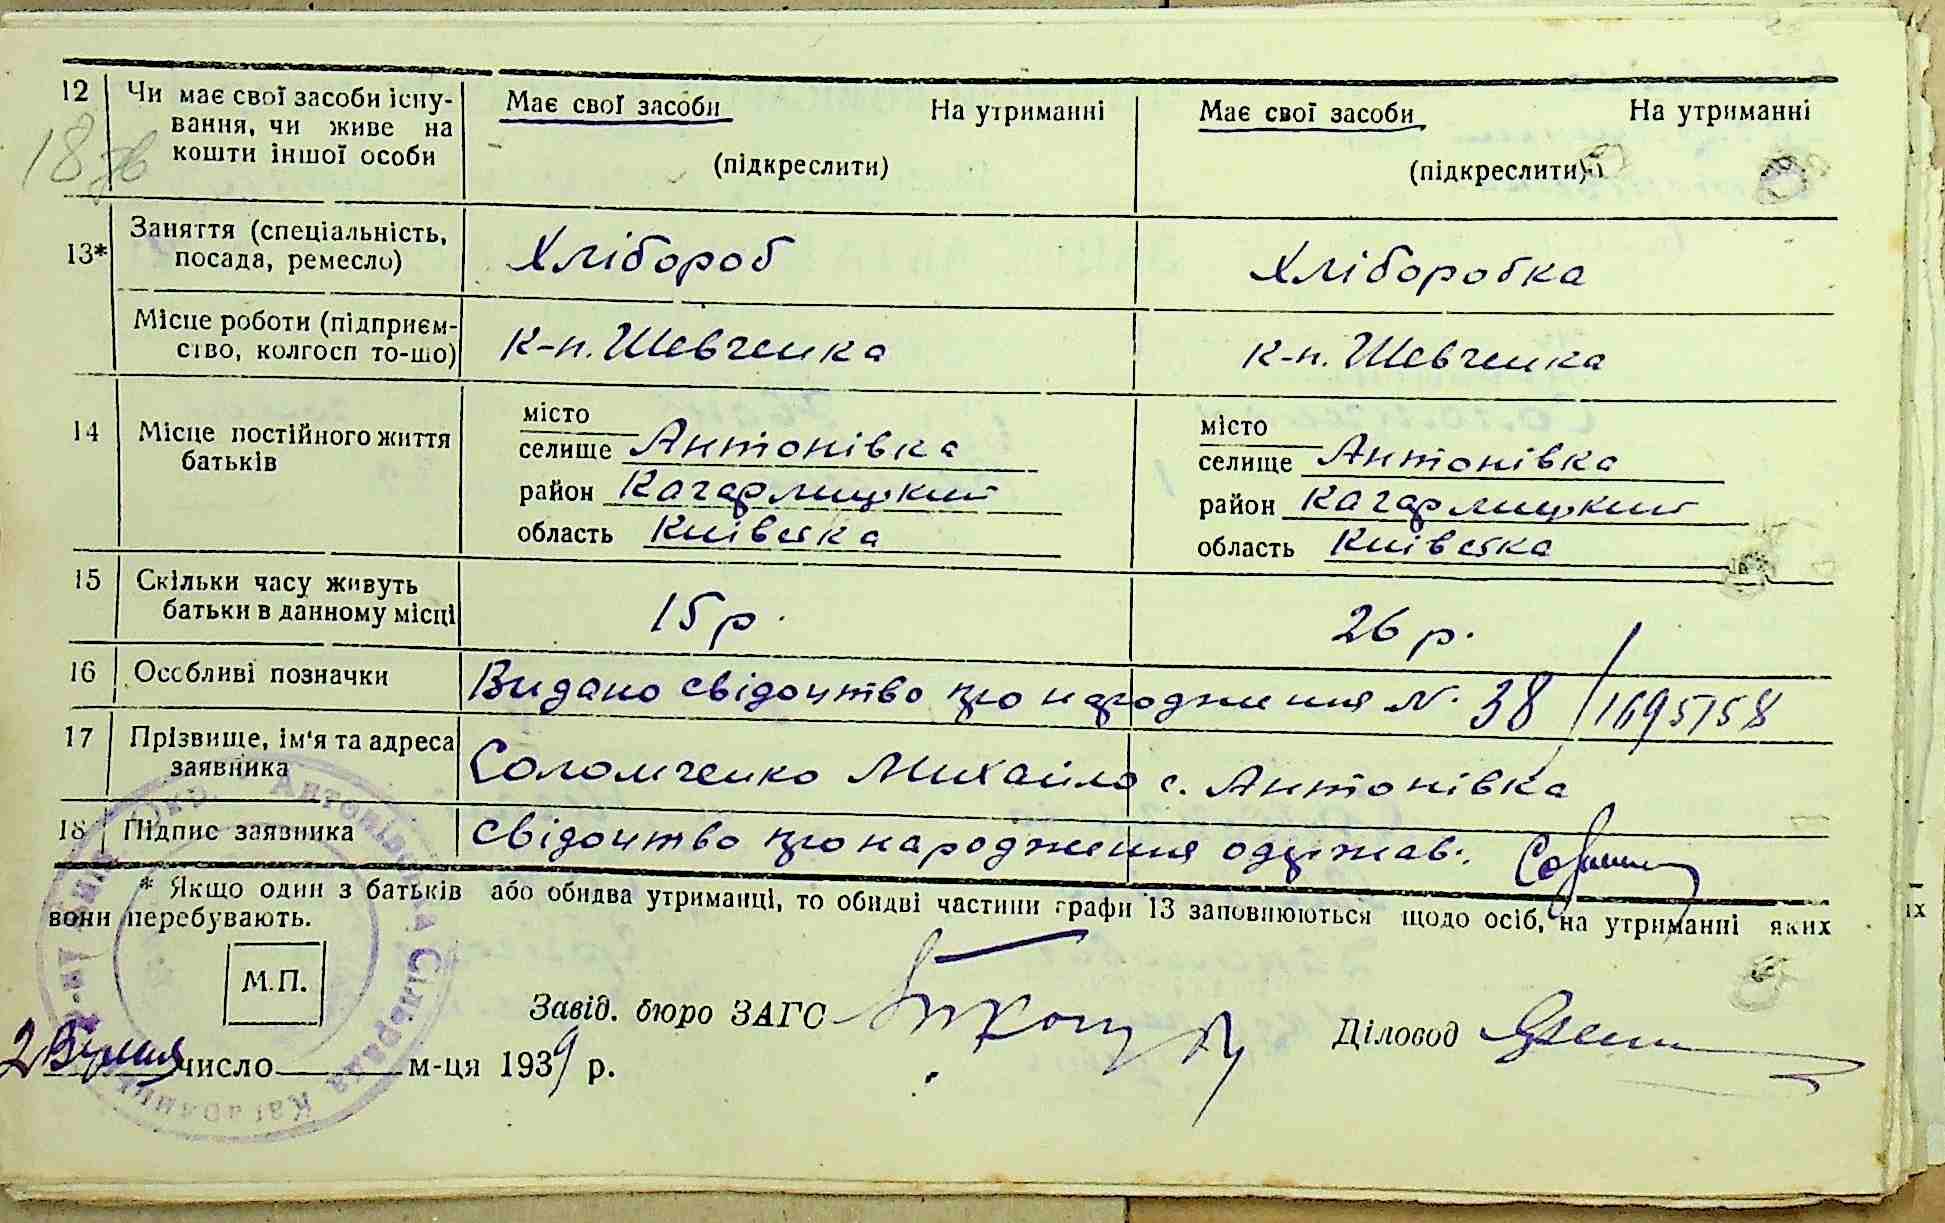 12 Чи має свої засоби існу- Має свої засоби На утриманні Має свої засоби На утриманні
вання, чи живе на
кошти іншої особи (підкреслити) (підкреслити)
18
13* Заняття (спеціальність, Хлібороб Хліборобка
посада, ремесло)
Місце роботи (підприєм- К-п. Шевченка К-п. Шевченка
ство, колгосп то-що)
14 Місце постійного життя місто місто
батьків селище Антонівка селище Антонівка
район Кагарлицкий район Кагарлицкий
область Київська область Київська
15 Скільки часу живуть 15 р. 26 р.
батьки в данному місці
16 Особливі позначки Видано свідоцтво про народження №. 38/1695758
17 Прізвище, ім'я та адреса Соломченко Михайло с. Антонівка
заявника
18 Підпис заявника свідоцтво про народження одержав.
* Якщо один з батьків або обидва утриманці, то обидві частини графи 13 заповнюються щодо осіб, на утриманні яких
вони перебувають.
М.П.
Завід. бюро ЗАГС Діловод
2 число м-ця 1939 р.
Антонівська Сільрада Кагарлицьк
их